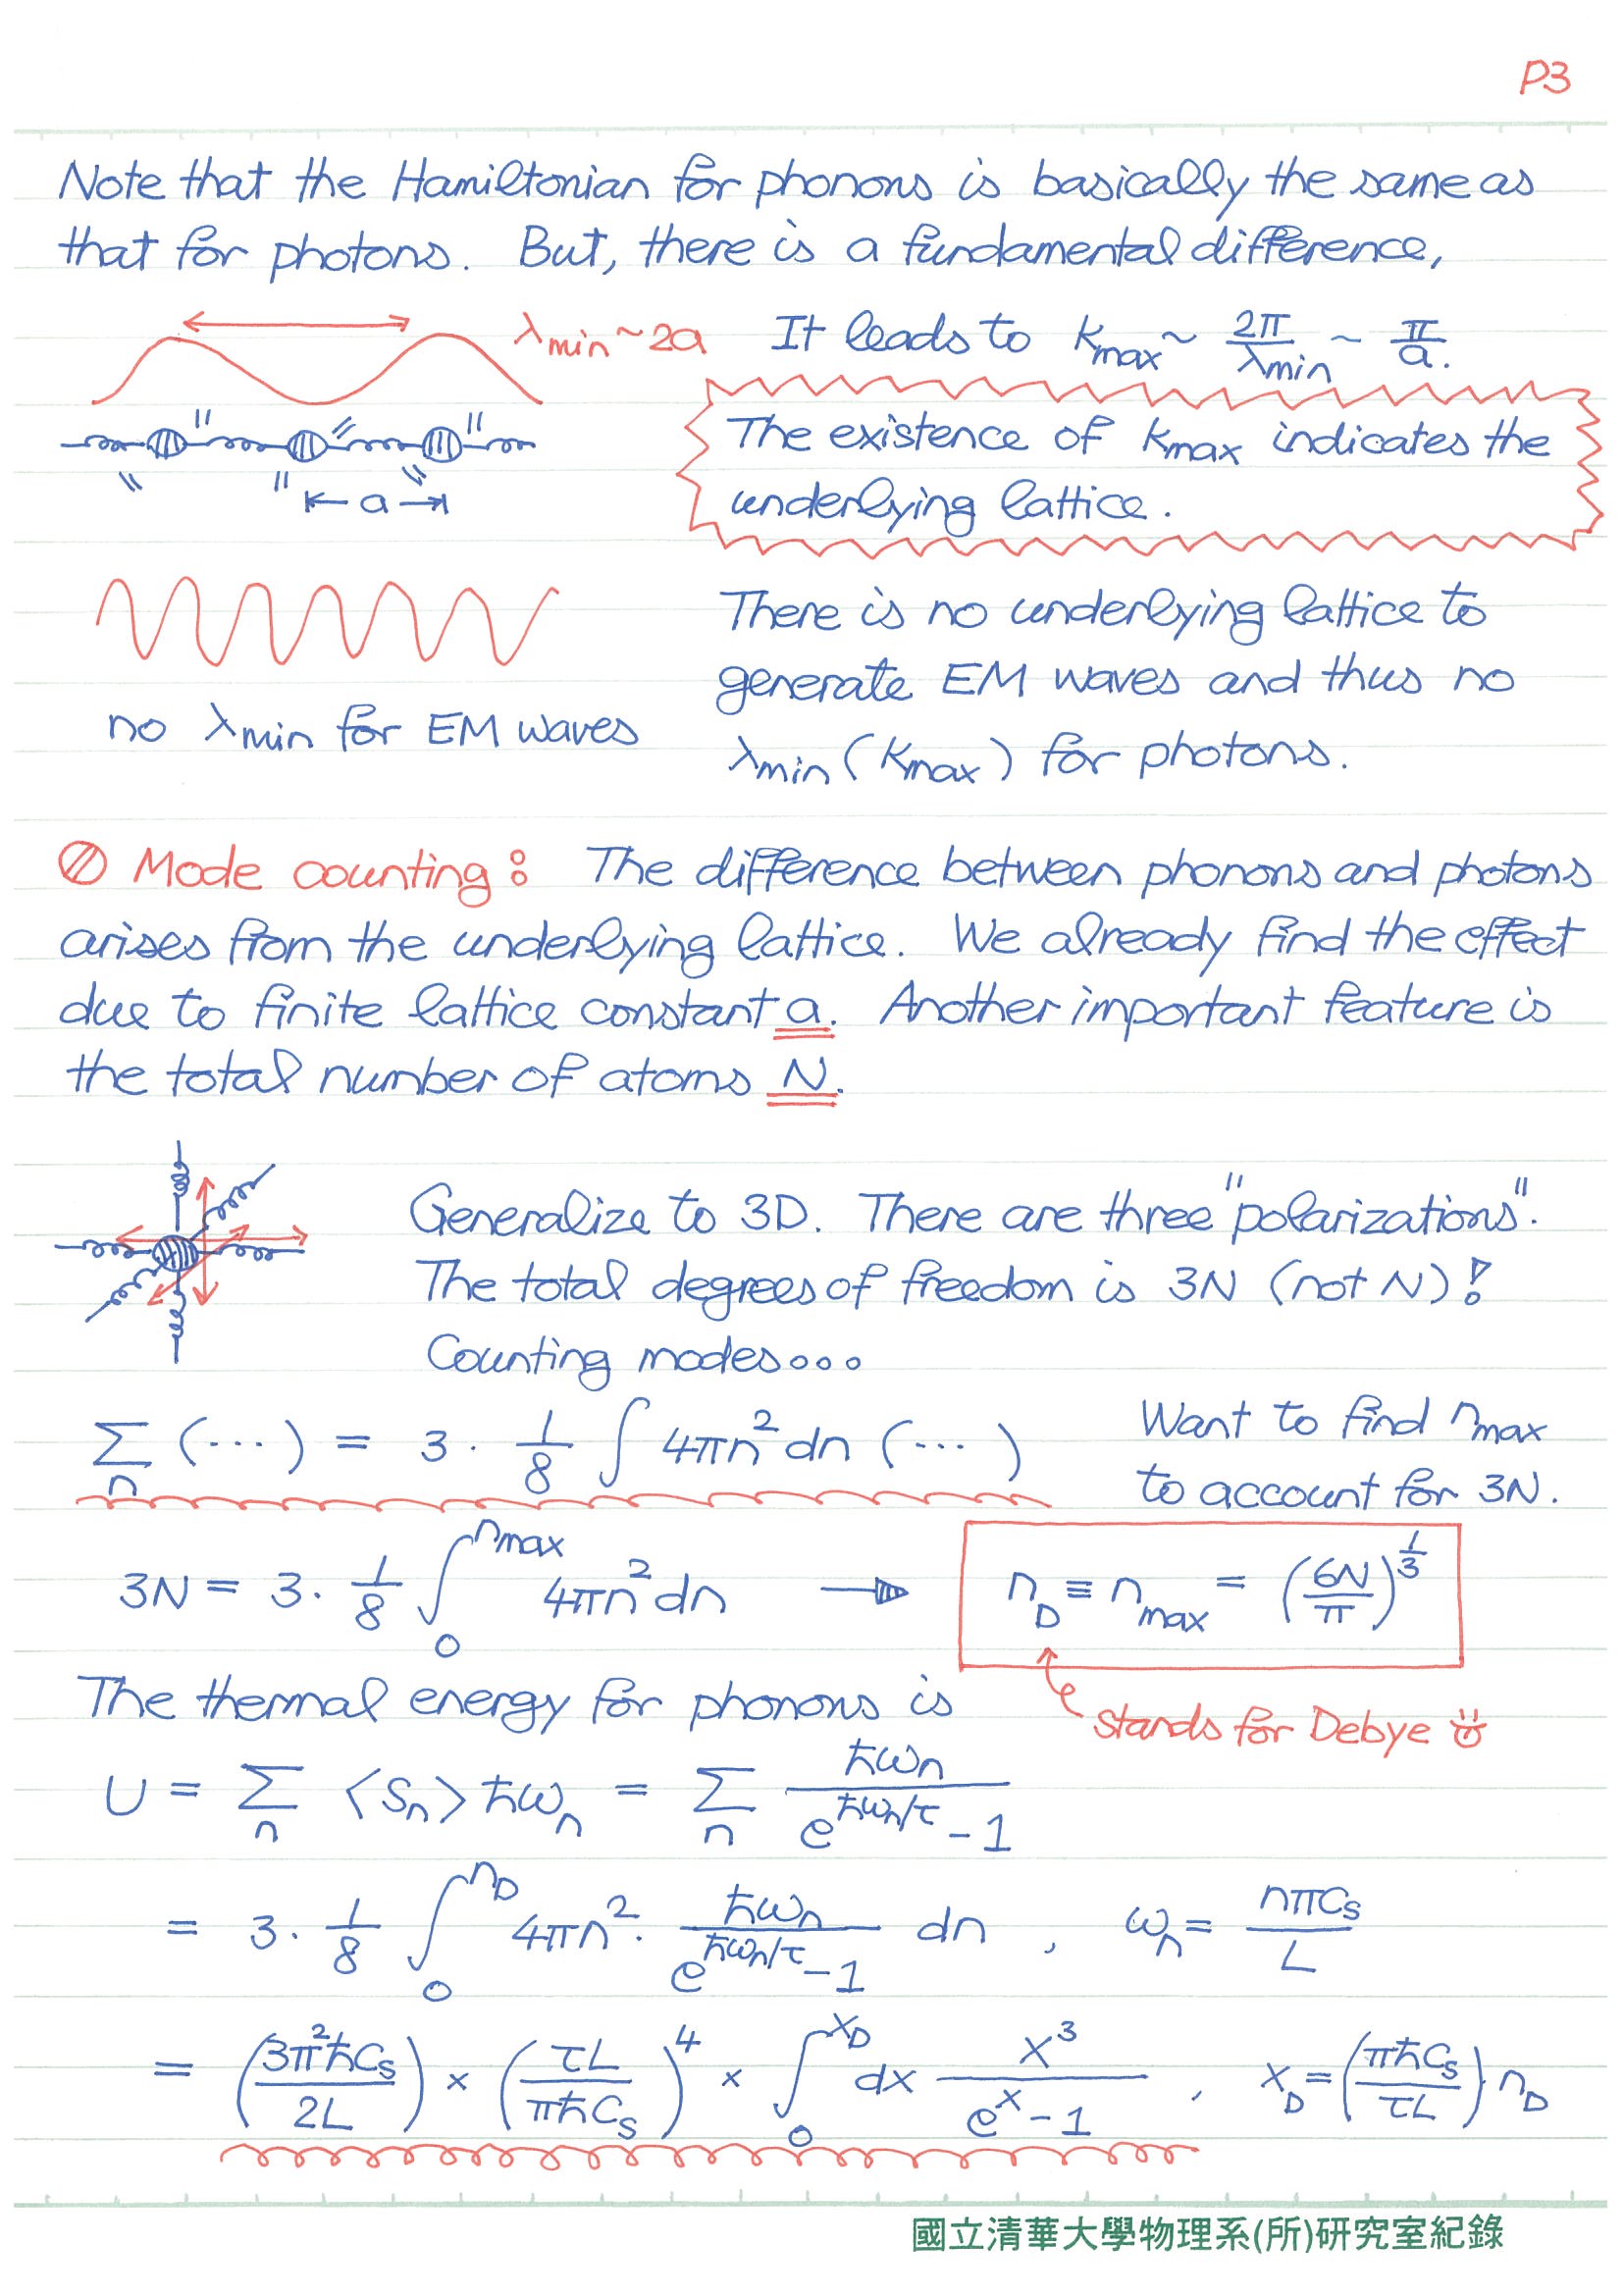 P3
Note that the Hamiltonian for phonons is basically the same as
that for photons. But, there is a fundamental difference,
λmin ~ 2a It leads to kmax ~ 2π/λmin ~ π/a.
The existence of kmax indicates the
underlying lattice.
a
There is no underlying lattice to
generate EM waves and thus no
λmin (kmax) for photons.
no λmin for EM waves
Mode counting: The difference between phonons and photons
arises from the underlying lattice. We already find the effect
due to finite lattice constant a. Another important feature is
the total number of atoms N.
Generalize to 3D. There are three "polarizations".
The total degrees of freedom is 3N (not N)!
Counting modes...
∑n (...) = 3 · 1/8 ∫ 4πn² dn (...)
Want to find nmax
to account for 3N.
3N = 3 · 1/8 ∫₀^nmax 4πn² dn → nD ≡ nmax = (6N/π)^1/3
The thermal energy for phonons is
stands for Debye
U = ∑n <Sn> ħωn = ∑n ħωn / (e^(ħωn/τ) - 1)
= 3 · 1/8 ∫₀^nD 4πn² · ħωn / (e^(ħωn/τ) - 1) dn , ωn = nπCs/L
= (3π²ħCs/2L) × (τL/πħCs)⁴ × ∫₀^xD dx x³/(e^x - 1) , xD = (πħCs/τL) nD
國立清華大學物理系(所)研究室紀錄